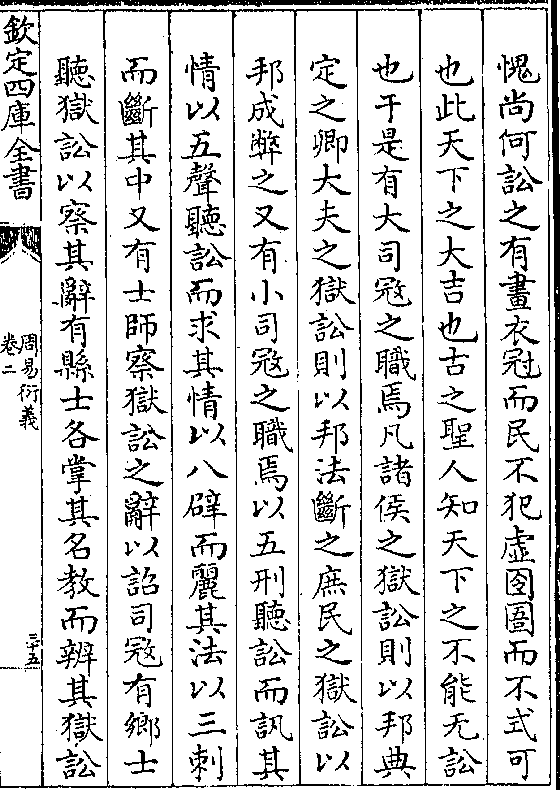 愧尚何訟之有畫衣冠而民不犯虛囹圄而不式可
也此天下之大吉也古之聖人知天下之不能无訟
也于是有大司宼之職焉凡諸侯之獄訟則以邦典
定之卿大夫之獄訟則以邦法斷之庶民之獄訟以
邦成弊之又有小司宼之職焉以五刑聽訟而訊其
情以五聲聽訟而求其情以八辟而麗其法以三刺
而斷其中又有士師察獄訟之辭以詔司宼有鄉士
聽獄訟以察其辭有縣士各掌其名教而辨其獄訟
欽定四庫全書
周易衍義
卷二
三十五